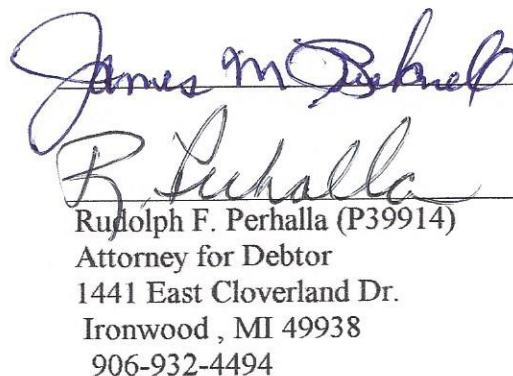 James M
R. Perhalla
Rudolph F. Perhalla (P39914)
Attorney for Debtor
1441 East Cloverland Dr.
Ironwood , MI 49938
906-932-4494